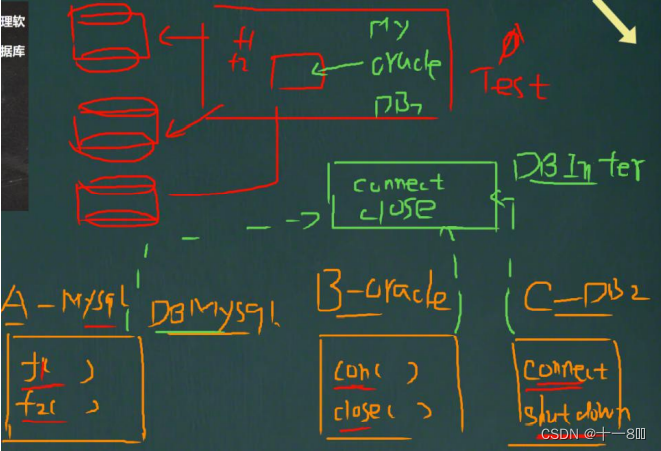 理软
据库
f1
f2
My
oracle
DB2
Test
DBInter
connect
close
A-Mysql
DBMysql
B-oracle
C-DB2
f1( )
f2( )
conn( )
close( )
connect
shutdown
CSDN @十一8